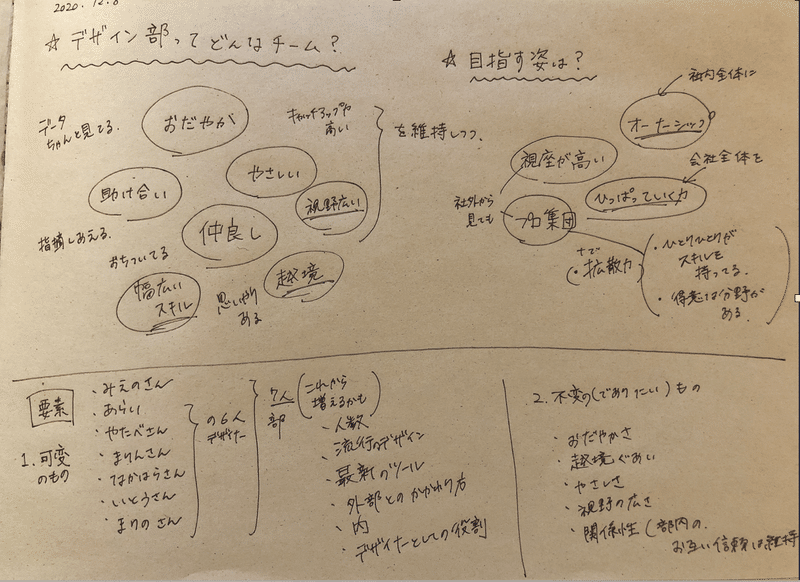 2020. 12. 8
☆ デザイン部ってどんなチーム?
データ
ちゃんと見てる.
おだやか
キャッチアップ力
高い
助け合い
やさしい
視野広い
指摘しあえる.
仲良し
おちついてる
越境
幅広い
スキル
思いやり
ある
を維持しつつ.
☆ 目指す姿は?
社内全体に
オーナーシップ
視座が高い
会社全体を
ひっぱっていく力
社外から
見ても
プロ集団
+で
・拡散力
・ひとりひとりが
スキルを
持ってる.
・得意な分野が
ある.
要素
1. 可変
のもの
・みえのさん
・あらい
・やたべさん
・まりんさん
・なかはらさん
・いとうさん
・まりのさん
の6人
デザイナー
7人
部
(これから
増えるかも)
・人数
・流行のデザイン
・最新のツール
・外部とのかかわり方
・内
・デザイナーとしての役割
2. 不変の(でありたい)もの
・おだやかさ
・越境ぐあい
・やさしさ
・視野の広さ
・関係性(部内の.
お互い信頼は維持